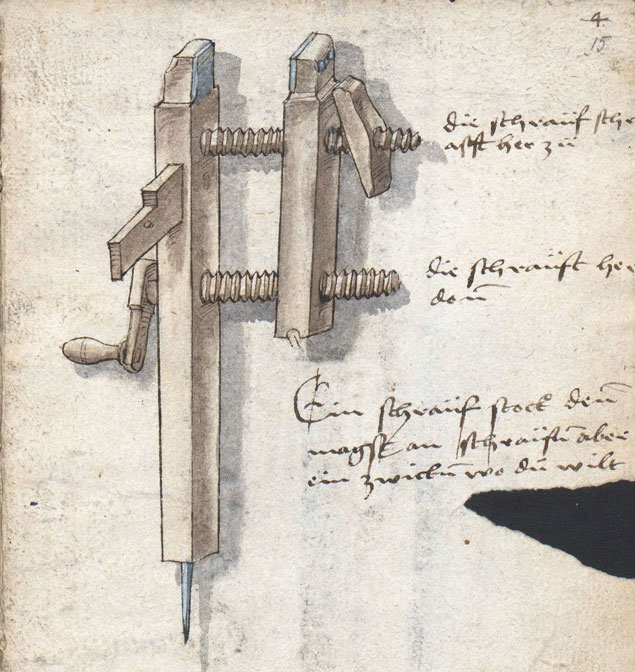 4.
15
die schrauf schr
afft her zü
die schraüft her
den̄
Ein schrauf stock den̄
magst an schraüffn̄ aber
ein zwickn̄ wo dü wilt